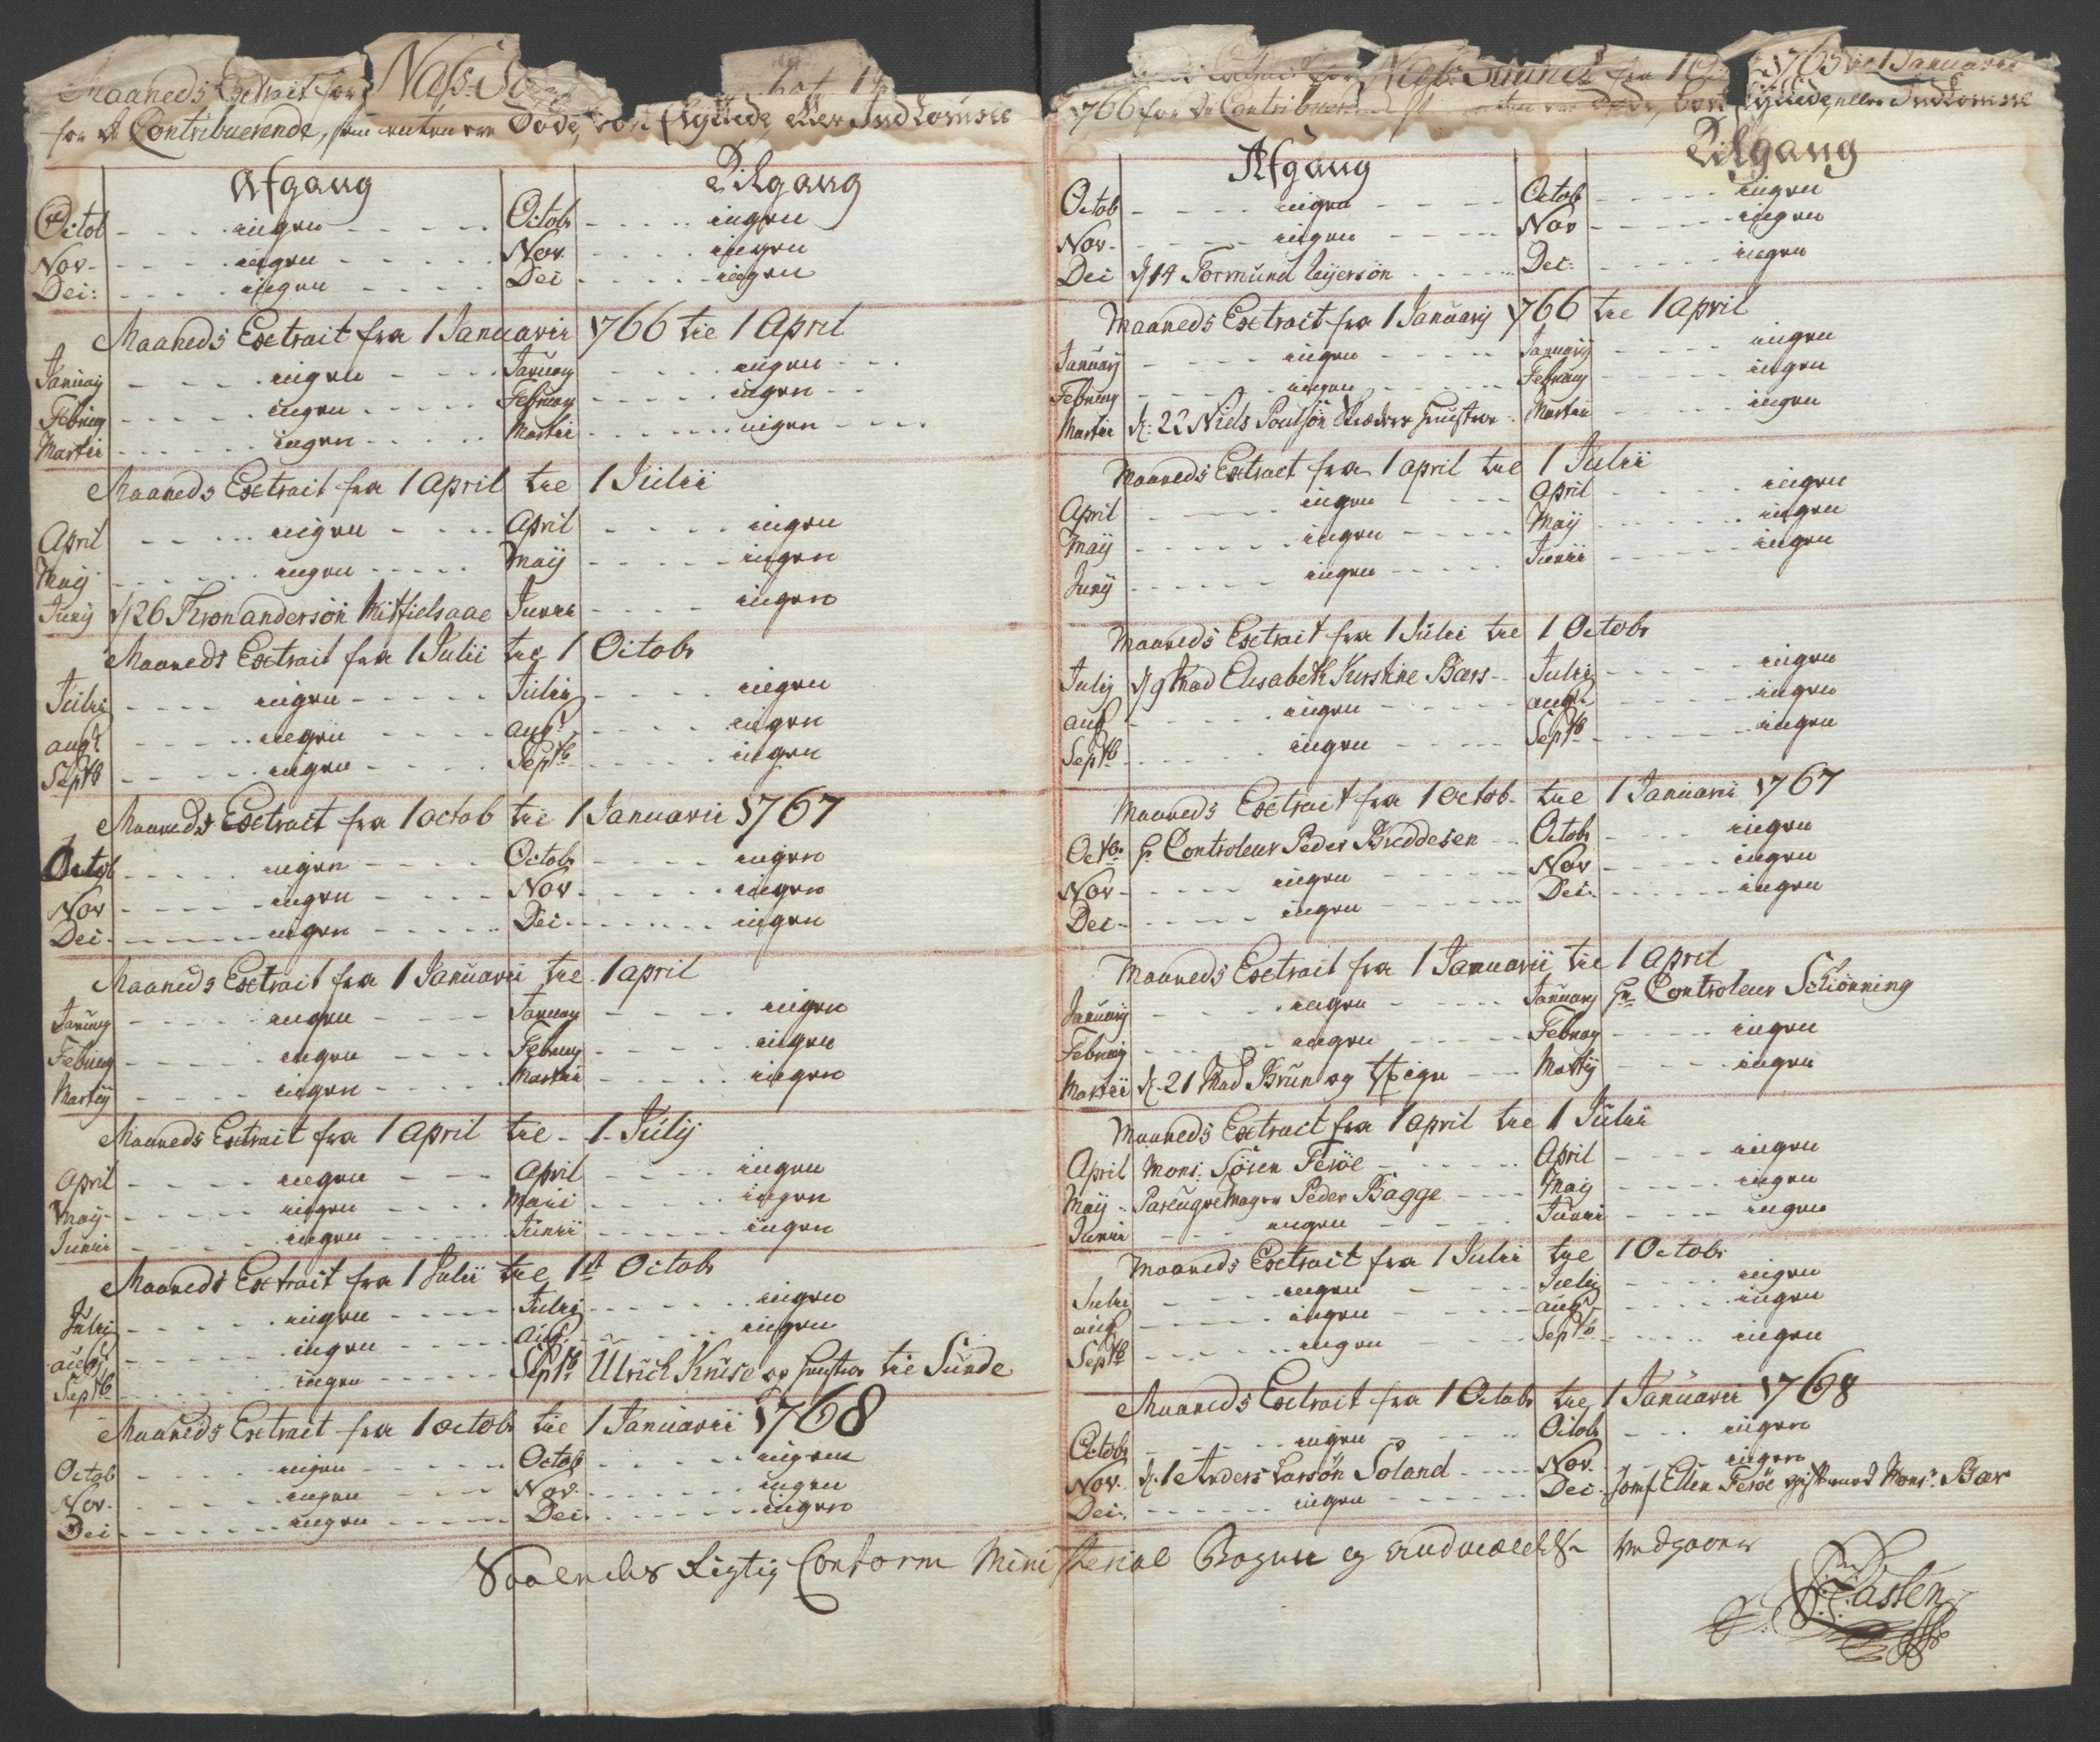 Maaneds Extrait for Næs-So
for De Contribuerende, som enten ere Døde, bort flyttede eller Indkomne
Afgang Tilgang
Octob - - - - ingen - - - - - Octobr - - - - - ingen
Nov - - - - - ingen - - - - - Nov. - - - - - ingen
Dec: - - - - - ingen - - - - Dec - - - - - ingen
Maaneds Extrait fra 1 Januarii 1766 til 1 April
Januarij - - - - ingen - - - - Januarij - - - - ingen
Februarij - - - - ingen - - - - Februarij - - - - ingen
Martii - - - - ingen - - - - Martii - - - - ingen
Maaneds Extrait fra 1 April til 1 Julii
April - - - - ingen - - - - April - - - - ingen
Maij - - - - ingen - - - - Maij - - - - ingen
Junij d/26 Tron andersøn Mitfielsaae Junii - - - - ingen
Maaneds Extrait fra 1 Julii til 1 Octobr
Julii - - - - ingen - - - - Julii - - - - ingen
augt - - - - ingen - - - - augt - - - - ingen
Septb - - - - ingen - - - - Septb - - - - ingen
Maaneds Extrait fra 1 octob til 1 Januarii 1767
Octob - - - - ingen - - - - Octobr - - - - ingen
Nov - - - - ingen - - - - Nov - - - - ingen
Dec - - - - ingen - - - - Dec - - - - ingen
Maaneds Extrait fra 1 Januarii til 1 april
Januarij - - - - ingen - - - - Januarij - - - - ingen
Februarij - - - - ingen - - - - Februarij - - - - ingen
Martij - - - - ingen - - - - Martii - - - - ingen
Maaneds Extrait fra 1 April til - 1 - Julij
April - - - - ingen - - - - April - - - - ingen
Maij - - - - ingen - - - - Maii - - - - ingen
Junii - - - - ingen - - - - Junii - - - - ingen
Maaneds Extrait fra 1 Julii til 1st Octobr
Julii - - - - ingen - - - - Julii - - - - ingen
augt - - - - ingen - - - - aug. - - - - ingen
Septb - - - - ingen - - - - Septb Ulrich Kruse og hustrue til Sunde
Maaneds Extrait fra 1 octobr til 1 Januarii 1768
Octob - - - - ingen - - - - Octob - - - - ingen
Nov. - - - - ingen - - - - Nov. - - - - ingen
Dec - - - - ingen - - - - Dec. - - - - ingen
Extrait for fra 1765 til 1 Januarii
1766 for De Contribuerende Døde, bort flyttede, eller Indkomne
Afgang Tilgang
Octob - - - - ingen - - - - Octob - - - - ingen
Nov - - - - ingen - - - - Nov - - - - ingen
Dec d/14 Tormund Reijersøn - - - - Dec: - - - - ingen
Maaneds Extrait fra 1 Januarij 1766 til 1 april
Januarij - - - - ingen - - - - Januarij - - - - ingen
Februarij - - - - ingen - - - - Februarij - - - - ingen
Martii d: 22 Niels Poulsøn hustrue Martii - - - - ingen
Maaneds Extract fra 1 april til 1 Julii
April - - - - ingen - - - - April - - - - ingen
Maij - - - - ingen - - - - Maij - - - - ingen
Junij - - - - ingen - - - - Junii - - - - ingen
Maaneds Extrait fra 1 Julii til 1 Octobr
Julij d/9 Mad Elisabeth Kirstine Bærs - - Julii - - - - ingen
aug - - - - ingen - - - - augt - - - - ingen
Septb - - - - ingen - - - - Septb - - - - ingen
Maaneds Extrait fra 1 octob. til 1 Januarii 1767
Octbr Hr Controleur Peder Buddesen - - Octobr - - - - ingen
Nov - - - - ingen - - - - Nov - - - - ingen
Dec - - - - ingen - - - - Dec. - - - - ingen
Maaneds Extrait fra 1 Januarii til 1 april
Januarij - - - - ingen - - - - Januarij Hr Controleur Schiønning
Februarij - - - - ingen - - - - Februarij - - - - ingen
Martii d. 21 Mad Brun og - - - Martij - - - - ingen
Maaneds Extract fra 1 april til 1 Julii
April Mons: Søren Ferøe - - - - April - - - - ingen
Maij - Peder Bagge - - - - Maij - - - - ingen
Junii - - - - ingen - - - - Junii - - - - ingen
Maaneds Extrait fra 1 Julii til 1 Octobr
Julii - - - - ingen - - - - Julij - - - - ingen
aug - - - - ingen - - - - augt - - - - ingen
Septb - - - - ingen - - - - Septb - - - - ingen
Maaneds Extrait fra 1 Octobr til 1 Januarii 1768
Octobr - - - - ingen - - - - Octobr - - - - ingen
Nov. d. 1 Anders Larsøn Soland - - - - Nov. - - - - ingen
Dec. - - - - ingen - - - - Dec. Jomf Ellen Ferøe gift med Mons: Bær
Saaledes Rigtig Conform Ministerial Bogen og vedgaaer